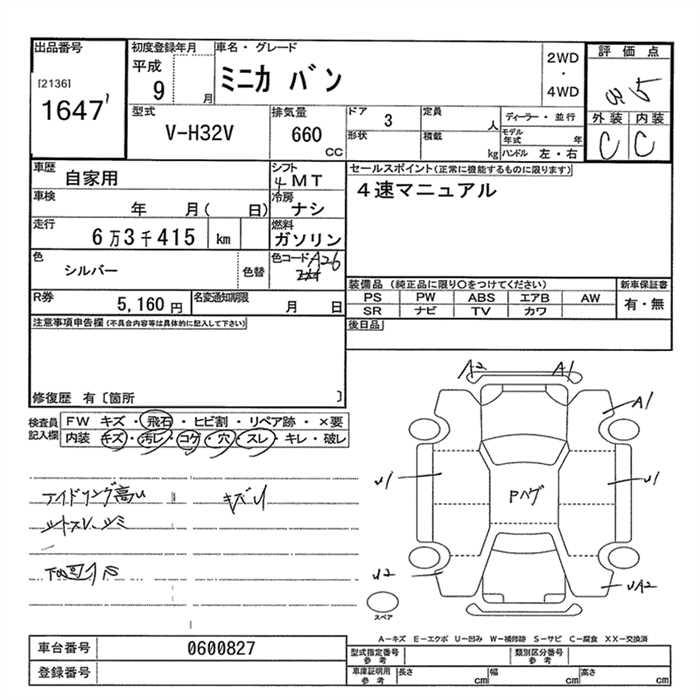 出品番号
[2136]
1647
初度登録年月
平成
9 月
車名・グレード
ミニカ バン
2WD
・
4WD
評価点
3.5
外装 内装
C C
型式
V-H32V
排気量
660
CC
ドア 3
形状
定員 人
積載 kg
ディーラー・並行
モデル年式 年
ハンドル 左・右
車歴
自家用
シフト
4MT
セールスポイント(正常に機能するものに限ります)
4速マニュアル
車検
年 月( 日)
冷房
ナシ
走行
6万3千415 km
燃料
ガソリン
色
シルバー
色替
色コード A26
装備品 (純正品に限り○をつけてください)
新車保証書
PS PW ABS エアB AW
有・無
SR ナビ TV カワ
R券
5,160 円
名変通知期限
月 日
後日品
注意事項申告欄 (不具合内容等は具体的に記入して下さい)
修復歴 有 [箇所 ]
検査員記入欄
FW キズ・飛石・ヒビ割・リペア跡・×要
内装 キズ・汚レ・コゲ・穴・スレ・キレ・破レ
A2 A1
A1
U1 U1
Pヘゲ
U2 UA2
スペア
アイドリング高い キズU
A―キズ E―エクボ U―凹み W―補修跡 S―サビ C―腐食 XX―交換済
車台番号
0600827
登録番号
型式指定番号
参考
類別区分番号
参考
車庫証明用
参考
長さ cm
幅 cm
高さ cm